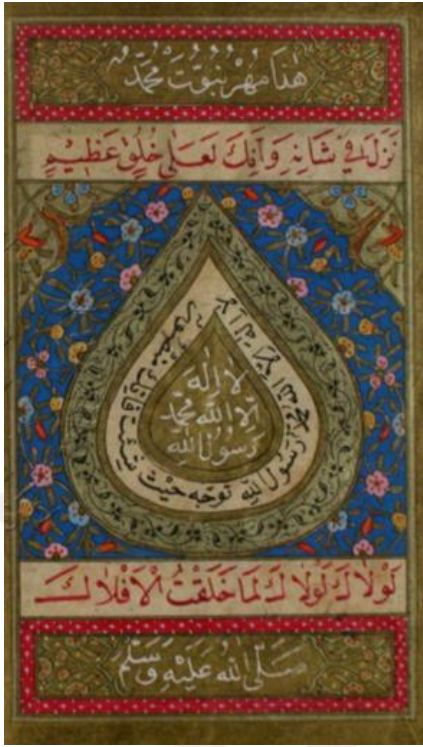 هٰذَا مُهْرِ نُبُوَّتْ مُحَمَّدْ
نَزَلَ فِي شَانِهِ وَاِنَّكَ لَعَلٰى خُلُقٍ عَظِيمٍ
لَا اِلٰهَ
اِلَّا اللّٰه مُحَمَّد
رَسُولُ اللّٰه
محمد رسول الله توجه حيث شئت فانك منصور
لَوْلَاكَ لَوْلَاكَ لَمَا خَلَقْتُ الْاَفْلَاكَ
صَلَّى اللّٰهُ عَلَيْهِ وَسَلَّمْ